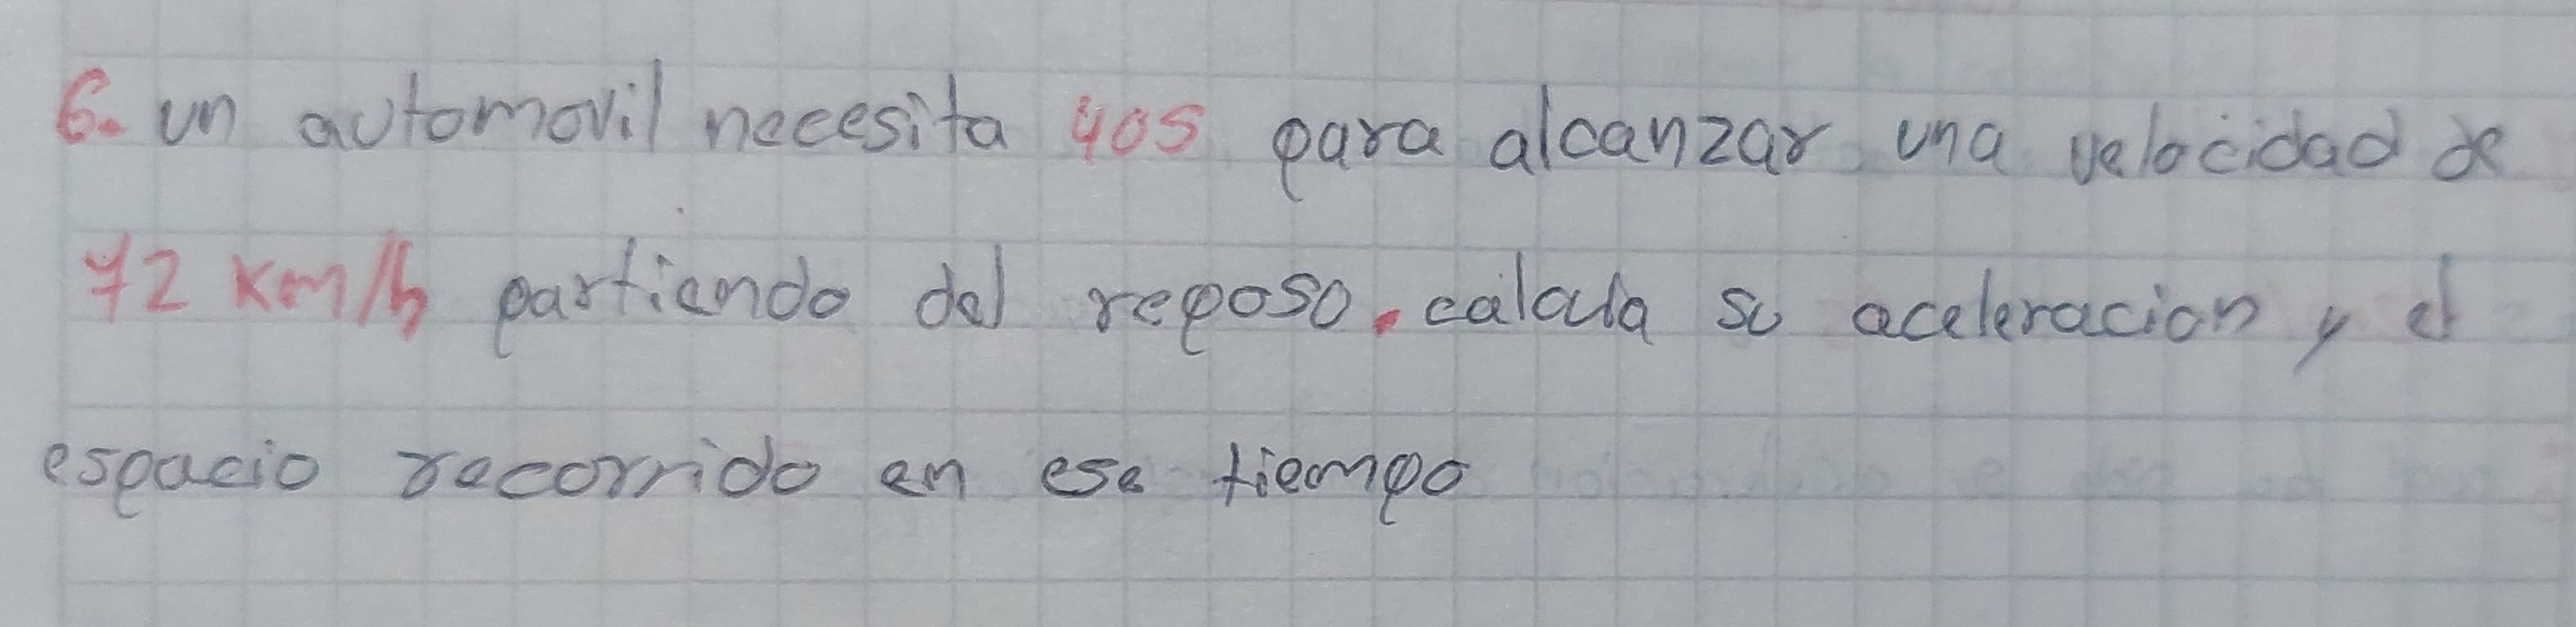 6. un automovil necesita 40s para alcanzar una velocidad de
72 Km/h partiendo del reposo. calcula su aceleracion y el
espacio recorrido en ese tiempo